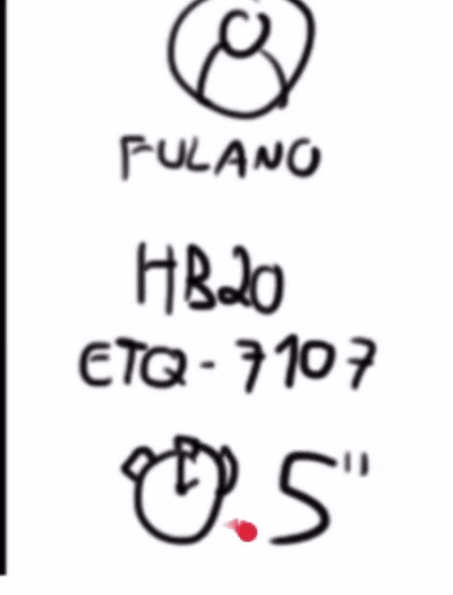 FULANO
HB20
ETQ-7107
5"